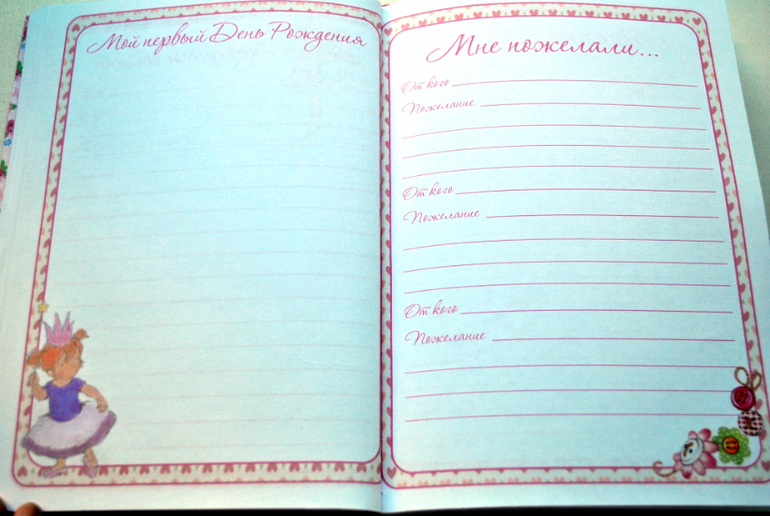 Мой первый День Рождения
Мне пожелали...
От кого
Пожелание
От кого
Пожелание
От кого
Пожелание